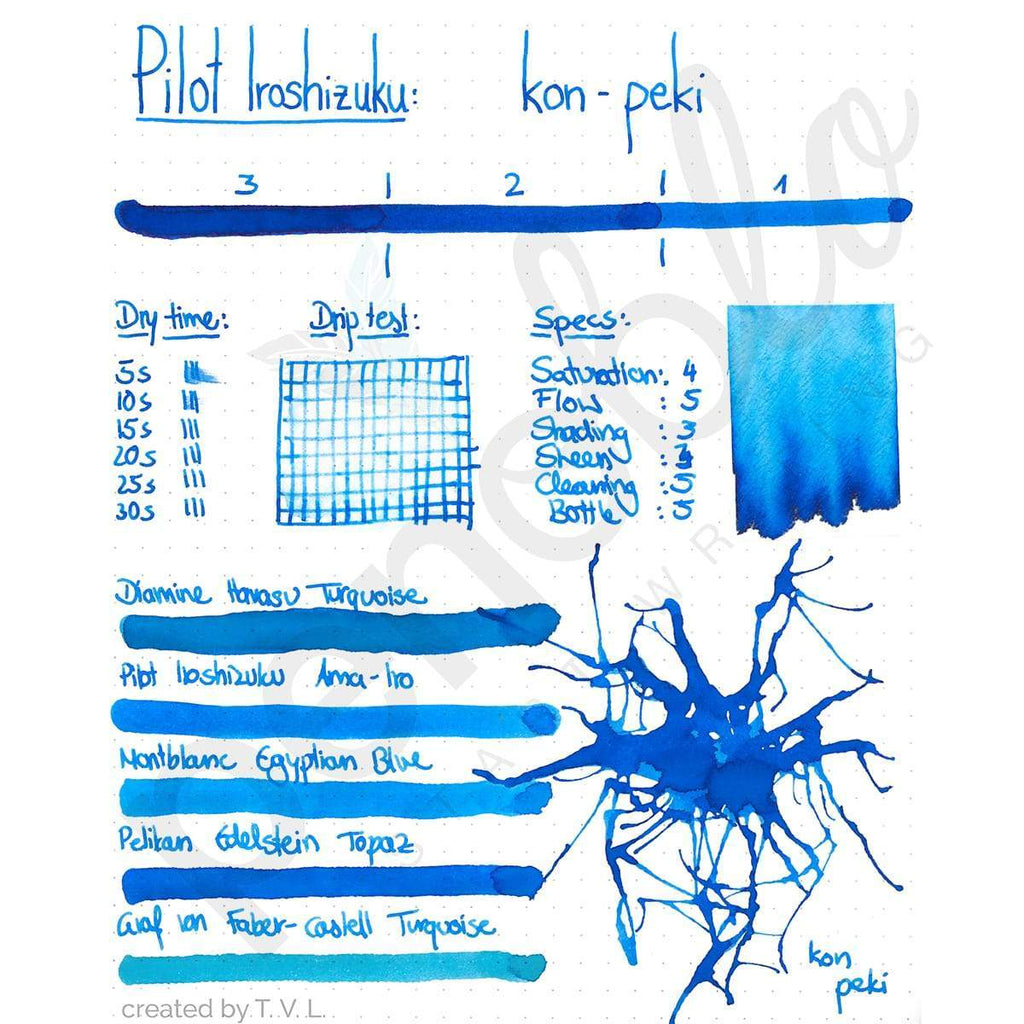 Pilot Iroshizuku: kon-peki
3 | 2 | 1
Dry time:
5s
10s
15s
20s
25s
30s
Drip test:
Specs:
Saturation: 4
Flow : 5
Shading : 3
Sheen :
Cleaning : 5
Bottle : 5
Diamine Havasu Turquoise
Pilot Iroshizuku Ama-Iro
Montblanc Egyptian Blue
Pelikan Edelstein Topaz
Graf von Faber-Castell Turquoise
kon
peki
created by T. V. L.
penoblo